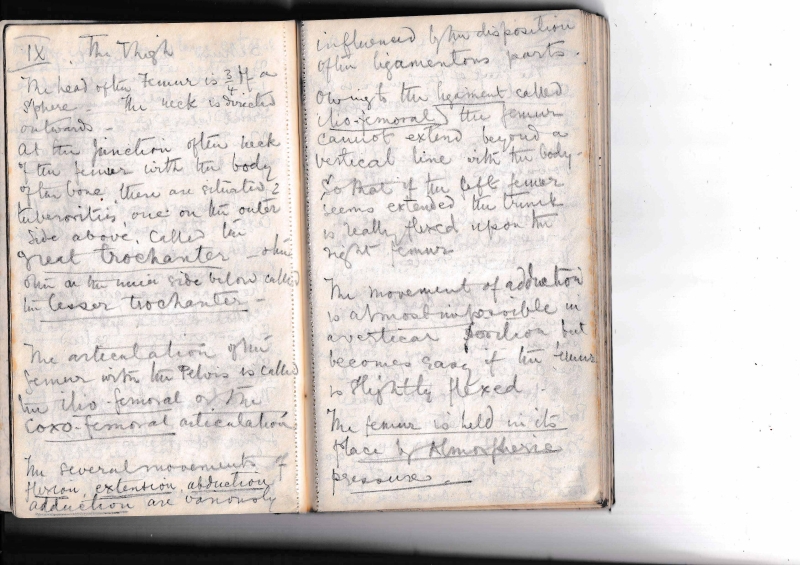 IX The Thigh
The head of the Femur is 3/4 of a
Sphere. The neck is directed
outwards.
At the Junction of the neck
of the femur with the body
of the bone there are situated 2
tuberosities one on the outer
side above, called the
great trochanter - the
other on the inner side below called
the lesser trochanter -
The articulation of the
femur with the Pelvis is called
the ilio-femoral or the
coxo-femoral articulation
The several movements of
flexion, extension, abduction
adduction are variously
influenced by the disposition
of the ligamentous parts.
Owing to the ligament called
ilio-femoral, the femur
cannot extend beyond a
vertical line with the body-
So that if the left femur
seems extended the trunk
is really flexed upon the
right femur
The movement of adduction
is almost impossible in
a vertical position but
becomes easy if the femur
is slightly flexed.
The femur is held in its
place by Atmospheric
pressure